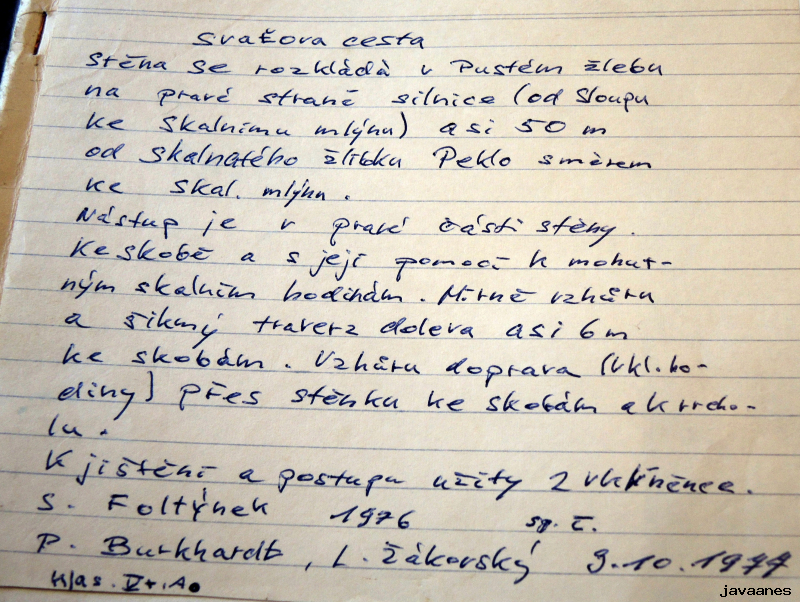 Svažova cesta
stěna se rozkládá v Pustém žlebu
na pravé straně silnice (od Sloupu
ke Skalnímu mlýnu) asi 50 m
od skalnatého žlíbku Peklo směrem
ke skal. mlýnu.
Nástup je v pravé části stěny.
Ke skobě a s její pomocí k mohut-
ným skalním hodinám. Mírně vzhůru
a šikmý traverz doleva asi 6m
ke skobám. Vzhůru doprava (vkl. ho-
diny) přes stěnku ke skobám a k vrcho-
lu.
K jištění a postupu užity 2 vklíněnce.
S. Foltýnek 1976 sp. č.
P. Burkhardt, L. Žákovský 9.10.1977
Klas. V+. A.
javaanes